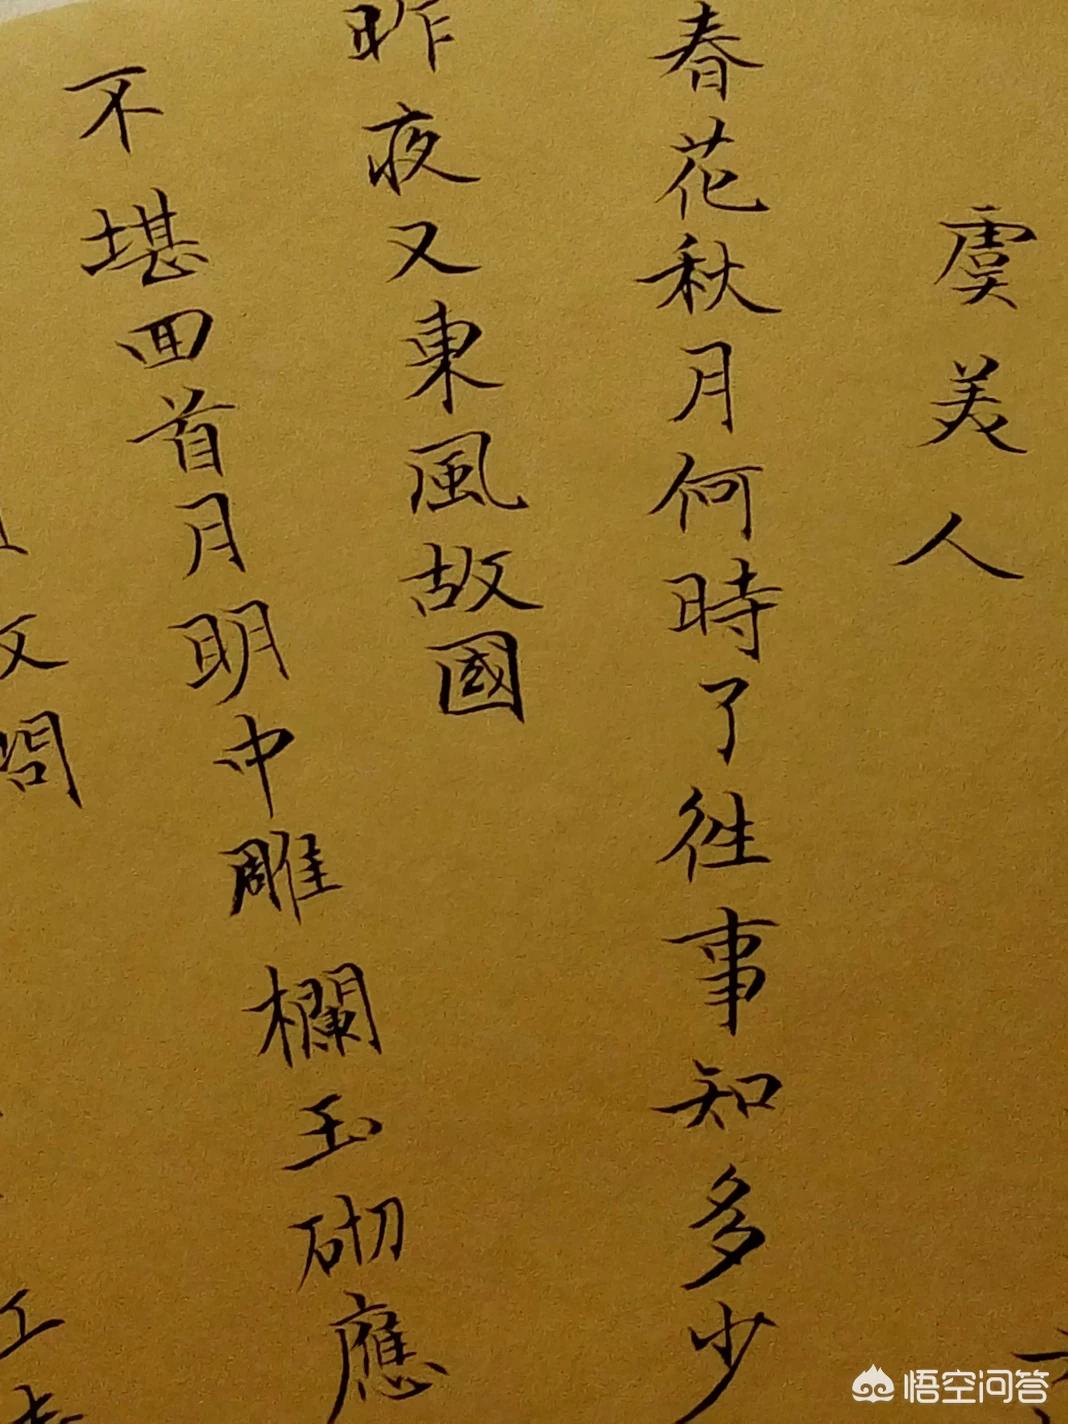 虞美人
春花秋月何時了往事知多少
昨夜又東風故國
不堪回首月明中雕欄玉砌應
悟空问答